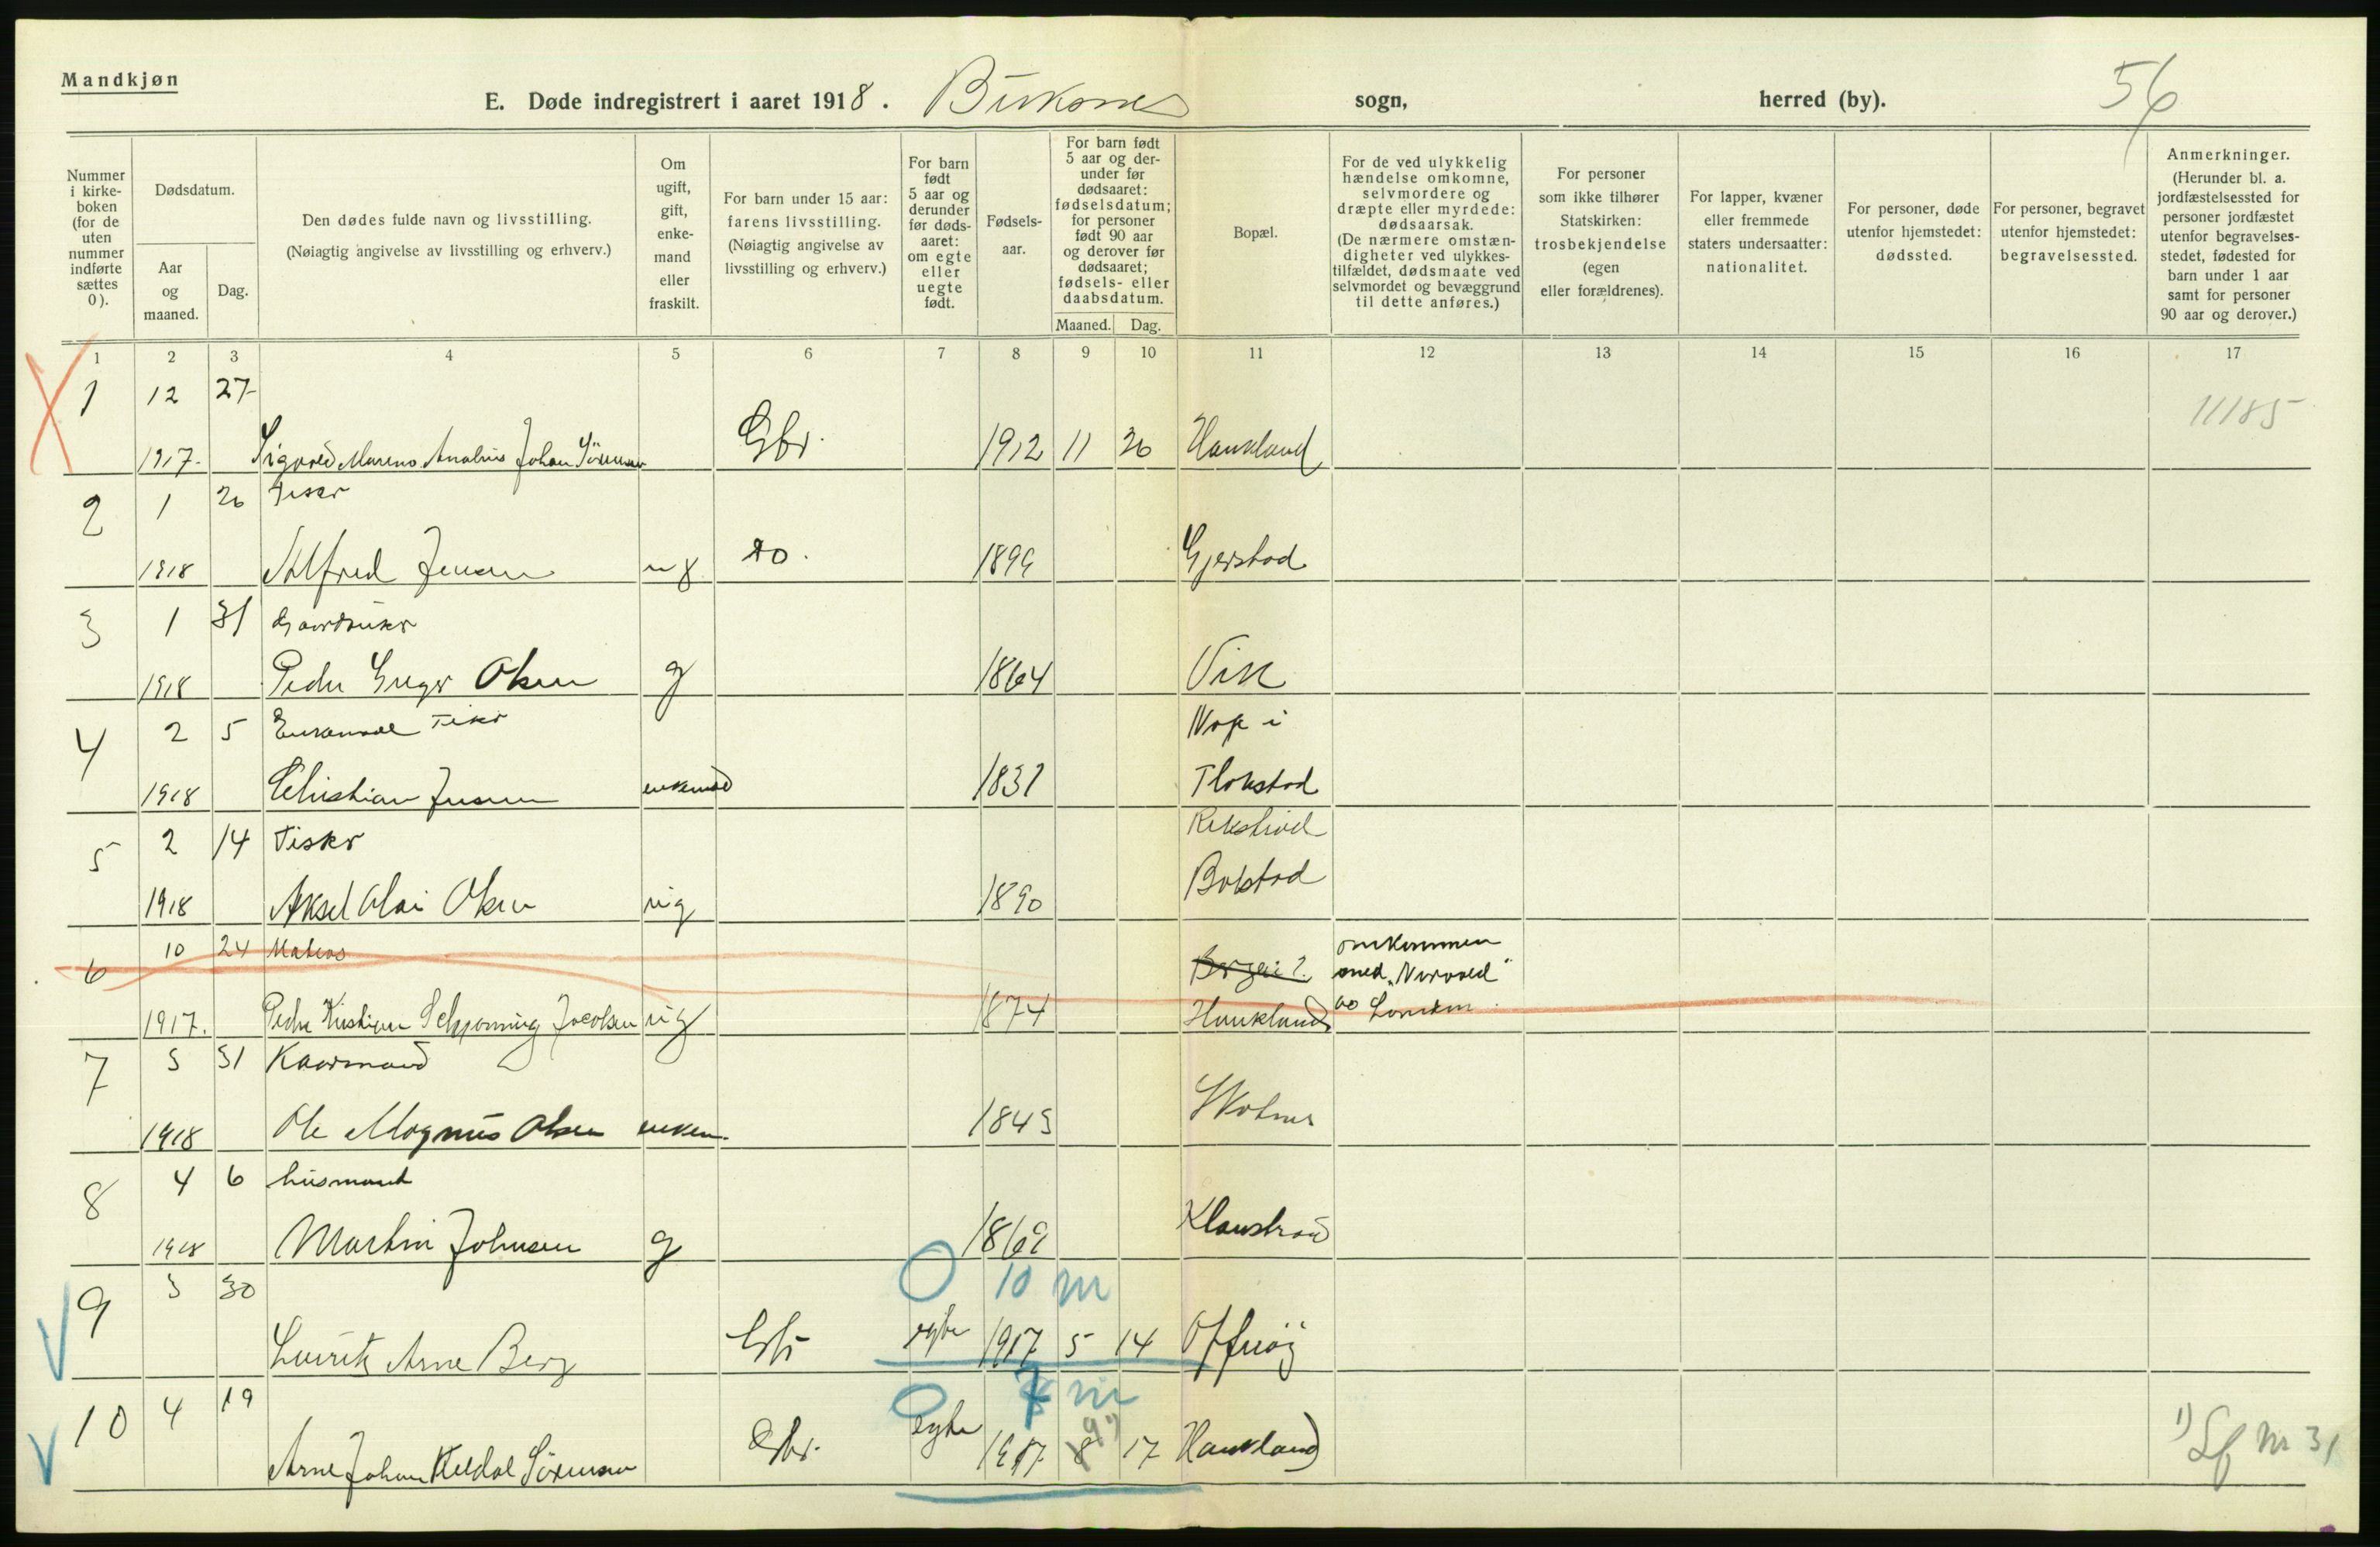 Mandkjøn
E. Døde indregistrert i aaret 1918. sogn, herred (by).
56
Nummer i kirke-boken (for de uten nummer indførte sættes 0).
Dødsdatum.
Aar og maaned.
Dag.
Den dødes fulde navn og livsstilling.
(Nøiagtig angivelse av livsstilling og erhverv.)
Om ugift, gift, enke-mand eller fraskilt.
For barn under 15 aar: farens livsstilling.
(Nøiagtig angivelse av livsstilling og erhverv.)
For barn født 5 aar og derunder før døds-aaret: om egte eller uegte født.
Fødsels-aar.
For barn født 5 aar og der-under før dødsaaret: fødselsdatum; for personer født 90 aar og derover før dødsaaret; fødsels- eller daabsdatum.
Maaned. Dag.
Bopæl.
For de ved ulykkelig hændelse omkomne, selvmordere og dræpte eller myrdede: dødsaarsak.
(De nærmere omstæn-digheter ved ulykkes-tilfældet, dødsmaate ved selvmordet og bevæggrund til dette anføres.)
For personer som ikke tilhører Statskirken: trosbekjendelse (egen eller forældrenes).
For lapper, kvæner eller fremmede staters undersaatter: nationalitet.
For personer, døde utenfor hjemstedet: dødssted.
For personer, begravet utenfor hjemstedet: begravelsessted.
Anmerkninger.
(Herunder bl. a. jordfæstelsessted for personer jordfæstet utenfor begravelses-stedet, fødested for barn under 1 aar samt for personer 90 aar og derover.)
1 2 3 4 5 6 7 8 9 10 11 12 13 14 15 16 17
1 12 27 11185
1917. Johan Sörensen Gbr. 1912 11 26 Haukland
2 1 26 Fisker
1918 Alfred Jensen ug do. 1899 Gjerstad
3 1 31 Gaardbruker
1918 Peder Greger Olsen g 1864 Vik
4 2 5 Fisker
1918 Christian Jensen enkemand 1831
5 2 14 Fisker
1918 Aksel Olai Olsen ug 1890 Bolstad
6 10 24 Matros omkommen med
1917. Peder Kristian Schjønning Jacobsen ug 1874 Haukland London
7 3 31 Kaarmand
1918 Ole Magnus Olsen enkem. 1843
8 4 6 husmand
1918 Martin Johnsen g 1869 Klaustrand
9 3 30 10 m
Arne Berg Gbr egte 1917 5 14 Offersøy
10 4 19 7 m
Arne Johan Sörensen Gbr. egte 1917 8 9 1) 17 Haukland 1) Lf nr 31